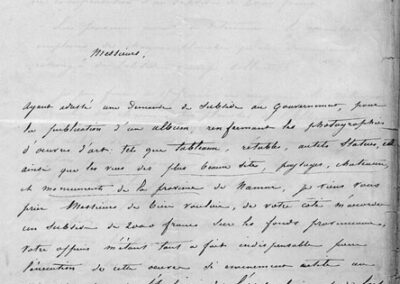 Messieurs,
Ayant adressé une demande de Subside au Gouvernement, pour
la publication d'un album, renfermant les photographies
d'œuvres d'art tels que tableaux, retables, autels Statues,
ainsi que les vues des plus beaux sites, paysages, chateaux
et monuments de la province de Namur, je viens vous
prier Messieurs de bien vouloir, de votre coté m'accorder
un Subside de 2000 francs sur les fonds provinciaux,
votre appui m'étant tout a fait indispensable pour
l'éxécution de cette œuvre si éminement utile au